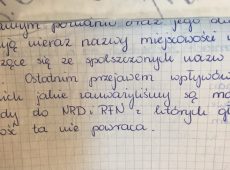 oraz jego
ują nieraz nazwy miejscowości
zące się ze spolszczonych nazw
Ostatnim przejawem wpływów
nich jakie zauważyliśmy są
dy do NRD i RFN z których
ość ta nie powraca.